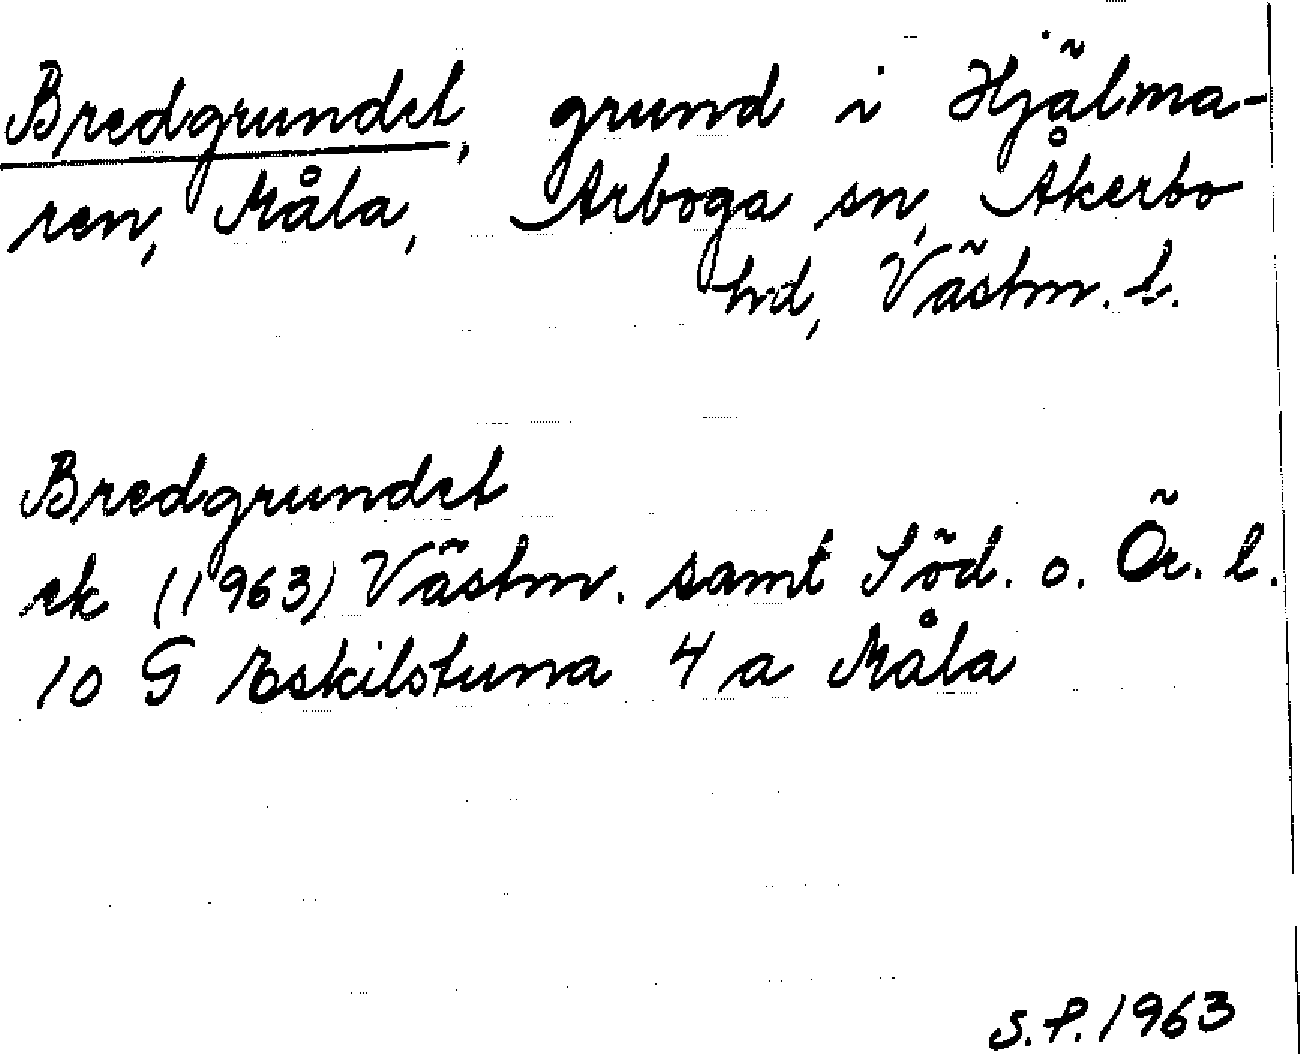 Bredgrundet, grund i Hjälma-
ren, Måla, Arboga sn, Åkerbo
hd, Västm. l.
Bredgrundet
ek (1963) Västm. samt Söd. o. Ör. l.
10 G Eskilstuna 4 a Måla
S.P. 1963